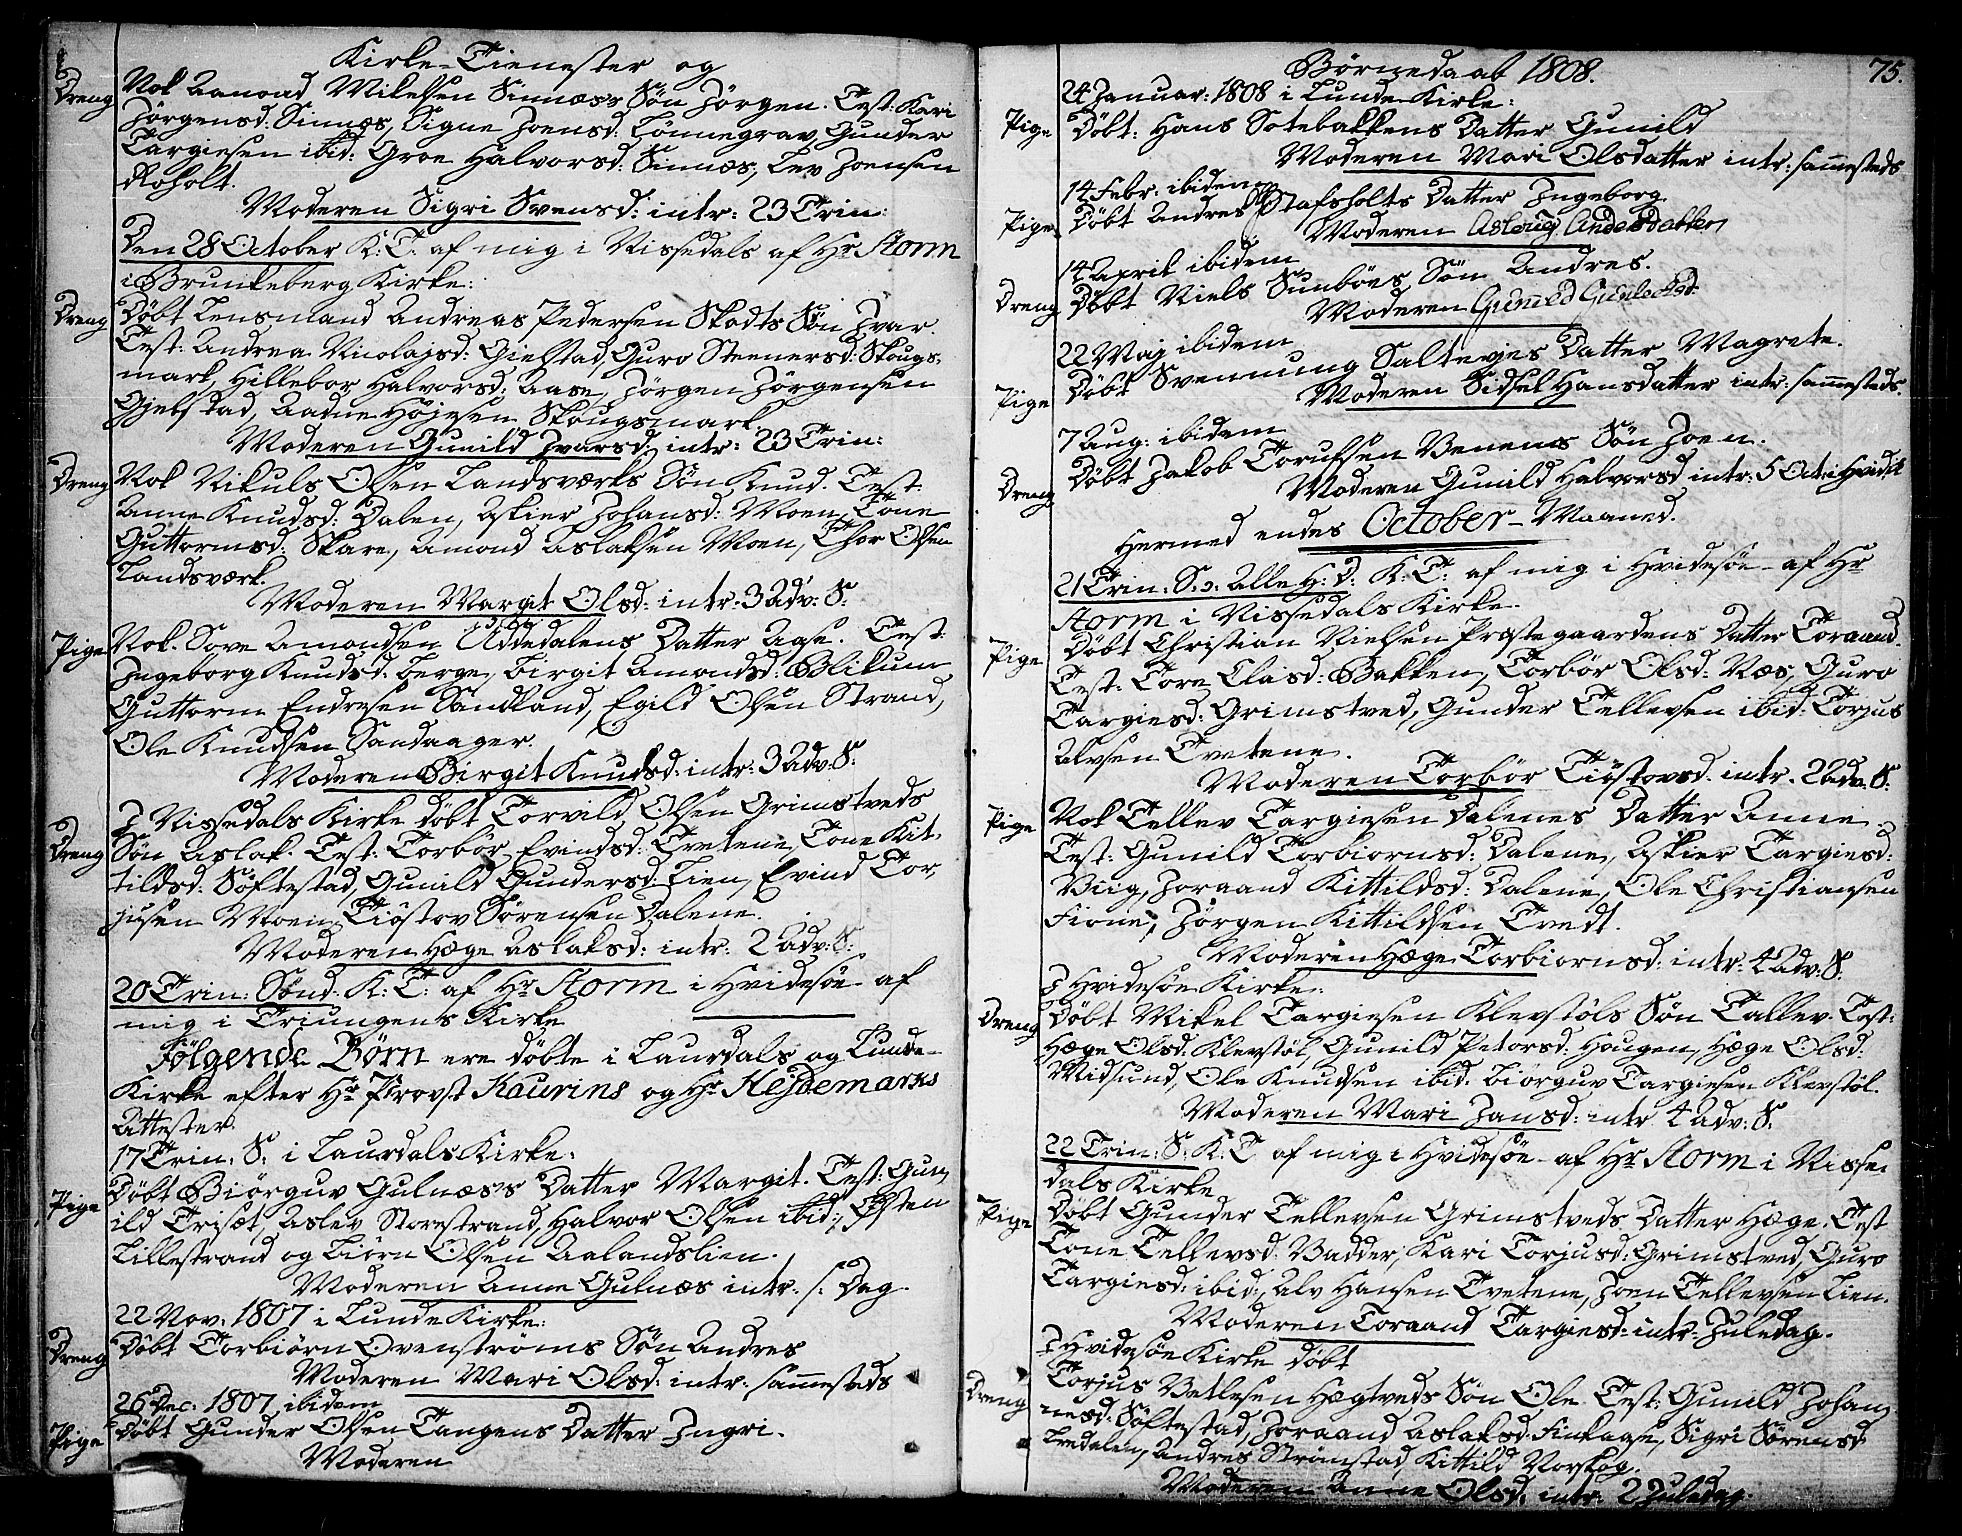 Kirke-Tienester og
Dreng Nok Aanond Mikelsen Sinnæs's Søn Jörgen. Test: Kari
Jörgensd: Sinnæs, Signe Joensd: Lönnegrav, Gunder
Targiesen ibid: Groe Halvorsd: Sinnæs, Lev Joensen
Roholt.
Moderen Sigri Svensd: intr: 23 Trin:
Den 28 October K: T: af mig i Nissedals af Hr Storm
i Brunkeberg Kirke:
Dreng Döbt Lensmand Andreas Pedersen Skodts Søn Ivar.
Test: Andrea Nicolajsd: Gielstad, Guro Steenersd: Skougs-
mark, Hillebor Halvorsd: Aase, Jörgen Jörgensen
Gjelstad, Aadne Höjesen Skougsmark.
Moderen Gunild Ivarsd: intr: 23 Trin:
Dreng Nok Nikuls Olsen Landsværks Søn Knud. Test:
Anne Knudsd: Dalen, Askier Johansd: Moen, Tone
Guttormsd: Skare, Amond Aslaksen Moen, Thor Olsen
Landsværk.
Moderen Margit Olsd: intr: 3 Adv: S:
Pige Nok Sove Amondsen Åddedalens Datter Aase. Test:
Ingeborg Knudsd: Berge, Birgit Amondsd: Blikum
Guttorm Endresen Sandland, Egild Olsen Strand,
Ole Knudsen Sandaager.
Moderen Birgit Knudsd: intr: 3 Adv: S:
I Nissedals Kirke döbt Torvild Olsen Grimstveds
Dreng Søn Aslak. Test: Torbör Evindsd: Tvetene, Tone Kit-
tildsd: Söftestad, Gunild Gundersd: Lien, Evind Tor-
jusen Moen, Tiöstov Sörensen Dalene.
Moderen Hæge Aslaksd: intr: 2 Adv: S:
20 Trin: Sönd: K: T: af Hr Storm i Hvidesöe af
mig i Triungens Kirke
Følgende Børn ere döbte i Laurdals og Lunde-
Kirke efter Hr Provst Kaurins og Hr Hejdemarks
Attester.
17 Trin: S: i Laurdals Kirke:
Pige Döbt Biörguv Gulnæs's Datter Margit. Test: Gun-
ild Trisæt, Aslev Storestrand, Halvor Olsen ibid:, Østen
Lillestrand og Biörn Olsen Aalandslien.
Moderen Anne Gulnæs intr: s: Dag.
22 Nov: 1807 i Lunde Kirke:
Dreng Döbt Torbiörn Ovenströms Søn Andres
Moderen Mari Olsd: intr: sammesteds
26 Dec: 1807 ibidem
Pige Döbt Gunder Olsen Tangens Datter Ingri.
Moderen
Børnedaab 1808. 75.
24 Januar: 1808 i Lunde Kirke:
Pige Döbt: Hans Sotebakkens Datter Gunild
Moderen Mari Olsdatter intr: sammesteds
14 Febr: ibidem
Pige Döbt Andres Stafsholts Datter Ingeborg.
Moderen Aslaug Andersdatter
14 April ibidem
Dreng Döbt Niels Sunböes Søn Andres.
Moderen Gunild Gunlecksd:
22 Maj ibidem
Pige Döbt Svennung Saltevjes Datter Magrete.
Moderen Sidsel Hansdatter intr: sammesteds.
7 Aug: ibidem
Dreng Döbt Jakob Torufsen Venems Søn Joen.
Moderen Gunild Halvorsd intr: 5 Oct: i Hvids:
Hermed endes October-Maaned.
21 Trin: S: Alle H: D: K: T: af mig i Hvidesöe af Hr
Storm i Nissedals Kirke.
Pige Döbt Christian Nielsen Præstegaardens Datter Toraand.
Test: Tore Clasd: Bakken, Torbör Olsd: Næs, Guro
Targiesd: Grimstved, Gunder Tellevsen ibid: Torjus
Alvsen Tvetene.
Moderen Torbör Tiöstovsd: intr: 2 Adv: S:
Pige Nok Tellev Targiesen Dalenes Datter Anne.
Test: Gunild Torbiornsd: Dalene, Askier Targiesd:
Viig, Joraand Kittildsd: Dalene, Ole Christiansen
Fione, Jörgen Kittildsen Tvedt.
Moderen Hæge Torbiornsd: intr: 4 Adv: S:
I Hvidesöe Kirke:
Dreng Döbt Mikel Targiesen Klevstöls Søn Tallev. Test:
Hæge Olsd: Klevstöl, Gunild Petersd: Haugen, Hæge Olsd:
Midsund, Ole Knudsen ibid: Biörguv Targiesen Klevstöl.
Moderen Mari Jansd: intr 4 Adv: S:
22 Trin: S: K: T: af mig i Hvidesöe af Hr Storm i Nisse-
dals Kirke
Pige Döbt Gunder Tellevsen Grimstveds Datter Hæge. Test
Tone Tellevsd: Vadder, Kari Torjusd: Grimstved, Guro
Targiesd: ibid:, Alv Hansen Tvetene, Joen Tellevsen Lien.
Moderen Toraand Targiesd: intr: Juledag.
I Hvidesöe Kirke döbt
Dreng Torjus Vetlesen Hægtveds Søn Ole. Test: Gunild Johan-
nesd: Söftestad, Joraand Aslaksd: Finkaase, Sigri Sörensd
Tredalen, Andres Strömstad, Kittild Norskog.
Moderen Anne Olsd: intr: 2 Juledag.